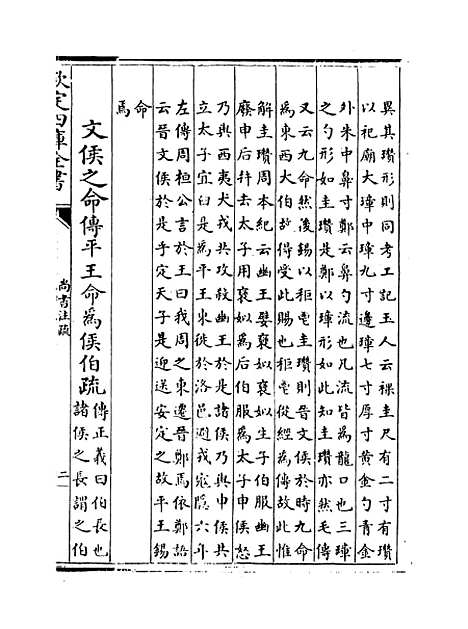 異其瓚形則同考工記玉人云祼圭尺有二寸有瓚
以祀廟大璋中璋九寸邊璋七寸厚寸黃金勺青金
外朱中鼻寸鄭云鼻勺流也凡流皆為龍口也三璋
之勺形如圭瓚是鄭以璋形如此知圭瓚亦然毛傳
又云九命然後錫以秬鬯圭瓚則晉文侯於時九命
為東西大伯故得受此賜也秬鬯從經為傳故此惟
解圭瓚周本紀云幽王嬖褒姒褒姒生子伯服幽王
廢申后并去太子用褒姒為后伯服為太子申侯怒
乃與西夷犬戎共攻殺幽王於是諸侯乃與申侯共
立太子宜臼是為平王東徙於洛邑避戎寇隱六年
左傳周桓公言於王曰我周之東遷晉鄭焉依鄭語
云晉文侯於是乎定天子是迎送安定之故平王錫
命
焉
文侯之命傳平王命為侯伯疏
傳正義曰伯長也
諸侯之長謂之伯
欽定四庫全書
尚書注疏
二